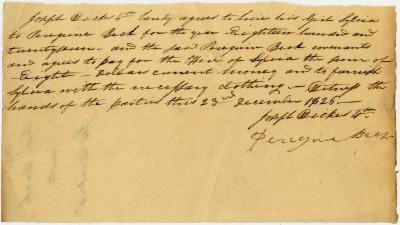 Joseph Eccles 4th hereby agrees to hire his Girl Sylvia
to Peregrine Beck for the year Eighteen hundred and
twentyseven — and the said Peregrine Beck covenants
and agrees to pay for the Hire of Sylvia the sum of
Eight — Dollars current money and to furnish
Sylvia with the necessary clothing — Witness the
hands of the parties this 23rd December 1826 —
Joseph Eccles 4th
Peregrine Beck